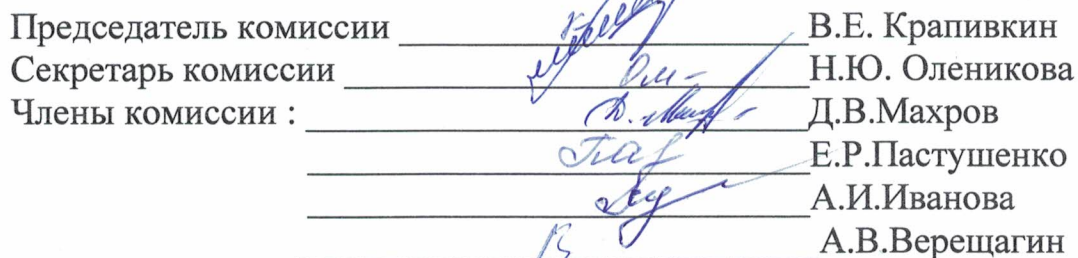 Председатель комиссии В.Е. Крапивкин
Секретарь комиссии Н.Ю. Оленикова
Члены комиссии : Д.В.Махров
Е.Р.Пастушенко
А.И.Иванова
А.В.Верещагин